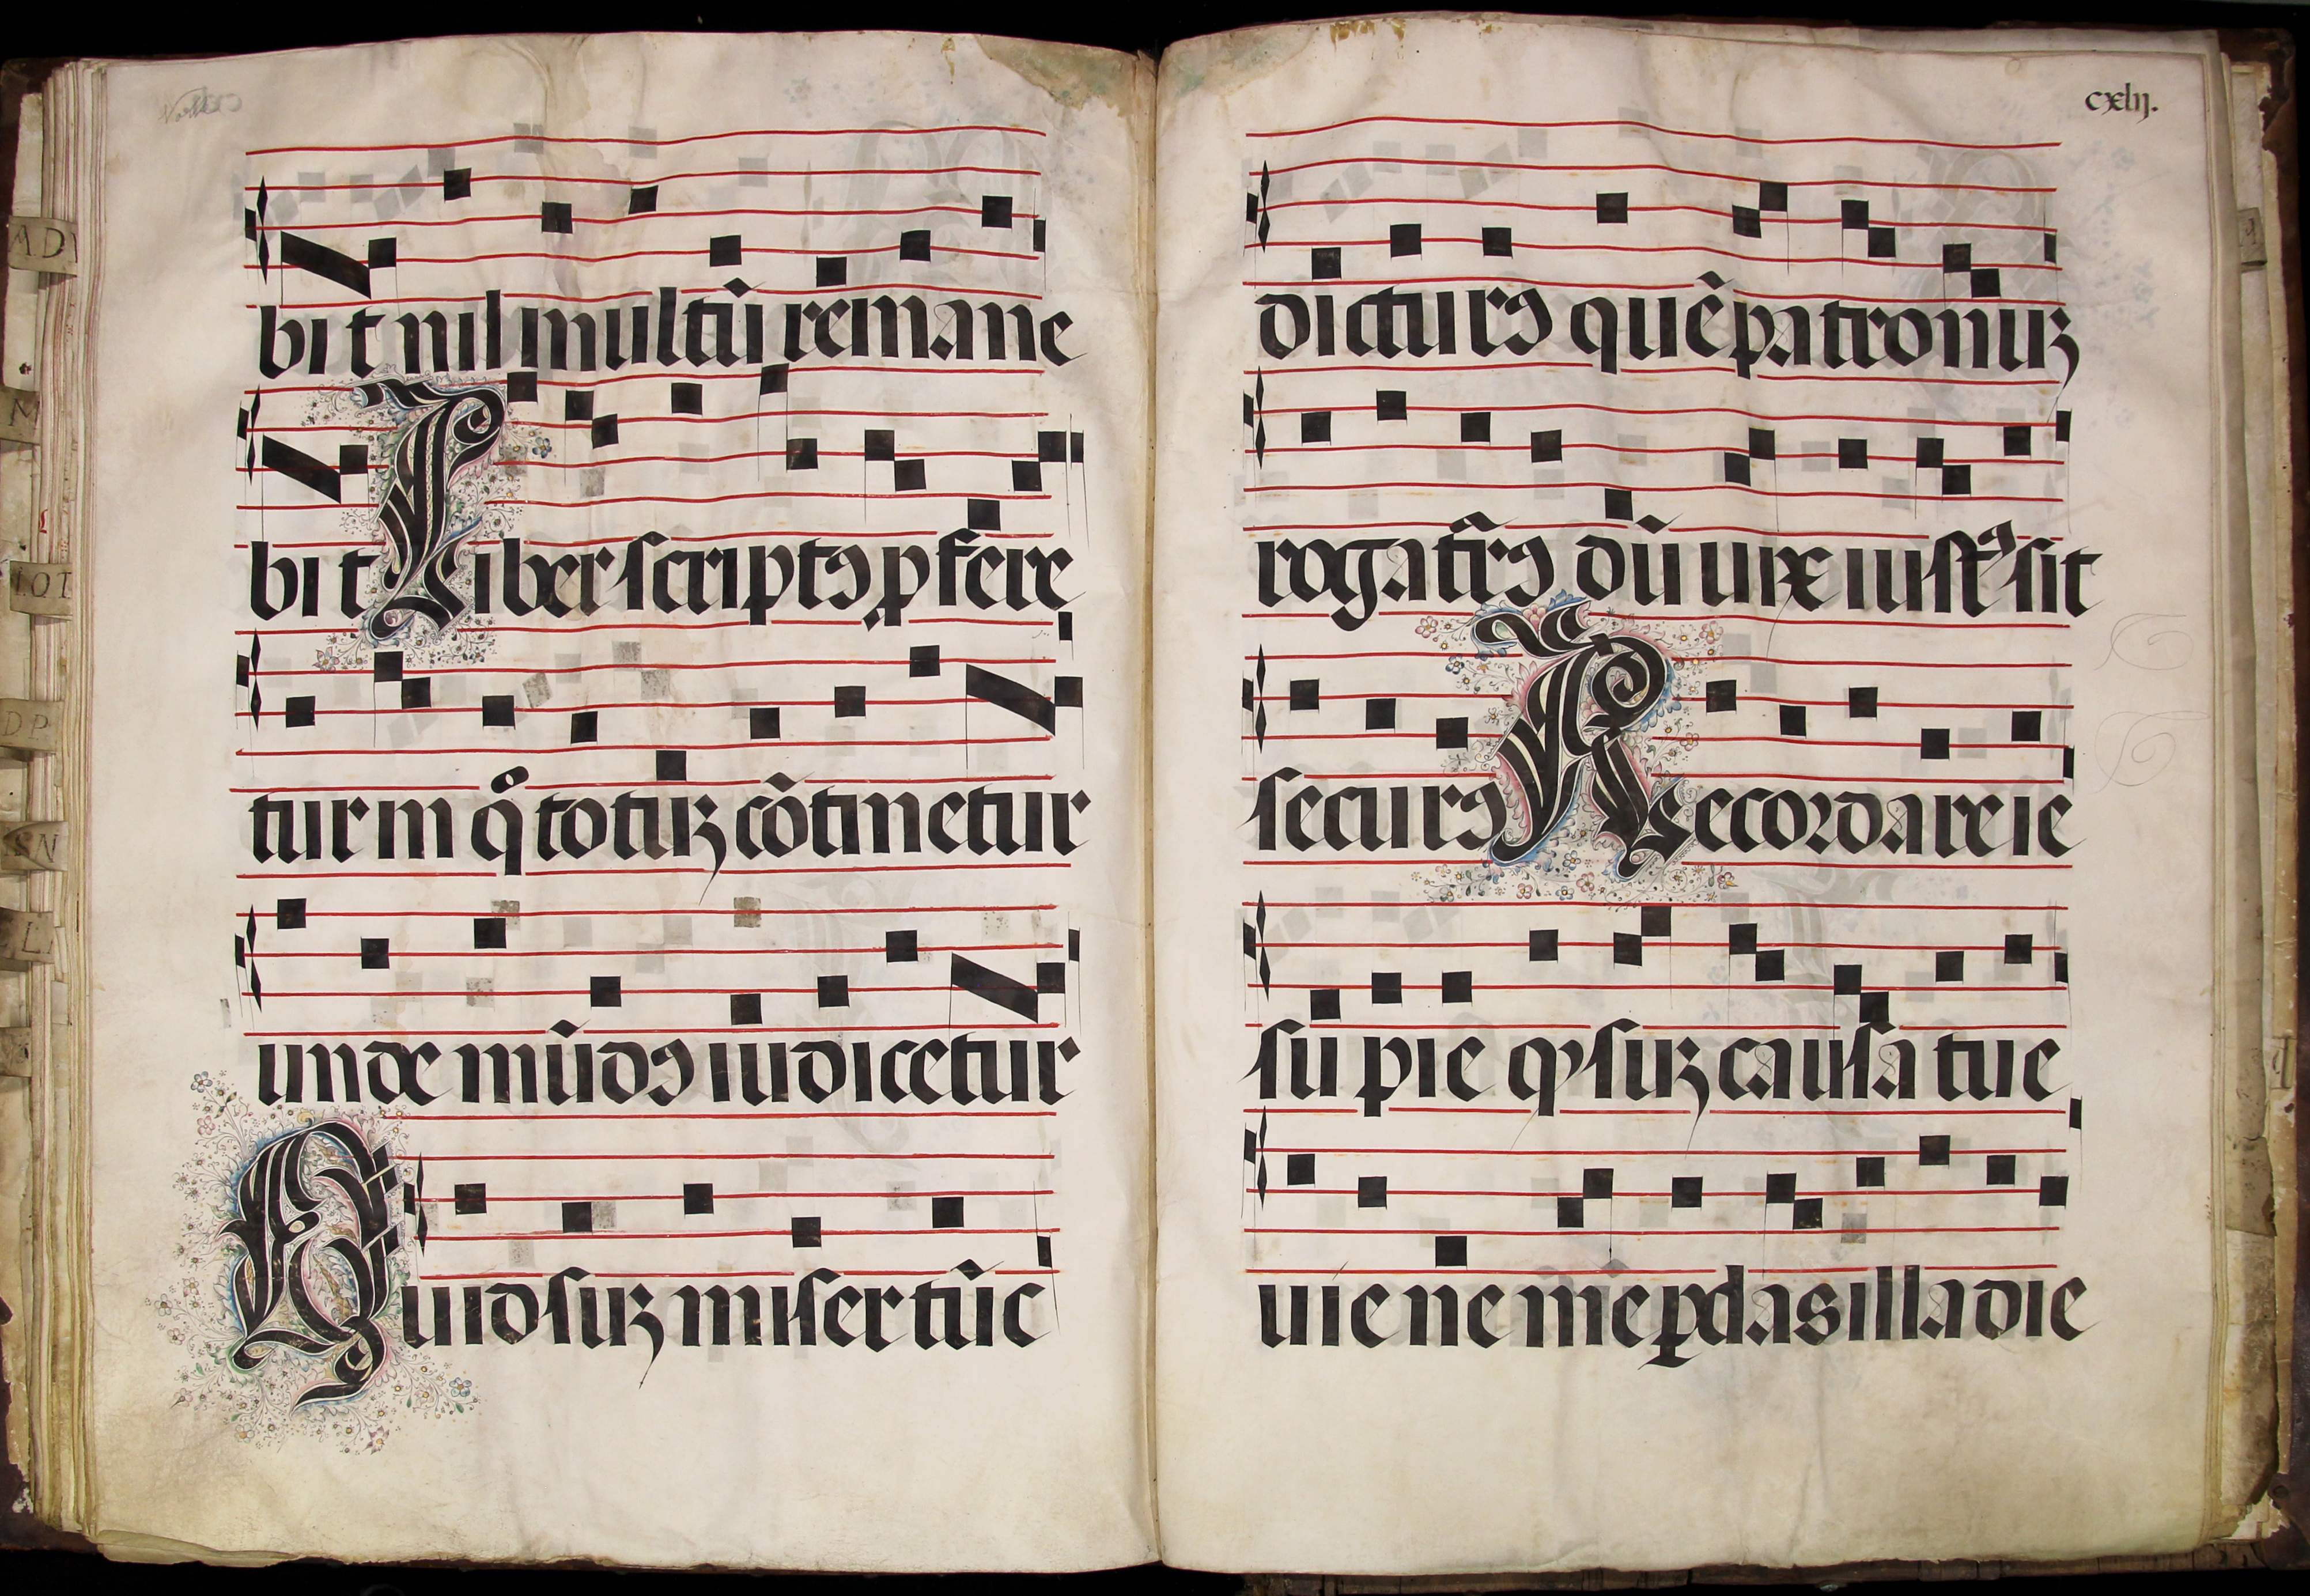 bit nil multū remane
bit Liber scriptꝰ ꝓfere
tur in qͦ totuꝫ cōtinetur
unde mūdꝰ iudicetur
Quid suꝫ miser tūc
cxlij.
dicturꝰ quē patronuꝫ
rogatūrꝰ dū uix iustꝰ sit
securꝰ Recordare ie
su pie ꝙ suꝫ causa tue
uie ne me ꝑdas illa die
AD
M
LOT
DP
SN
L